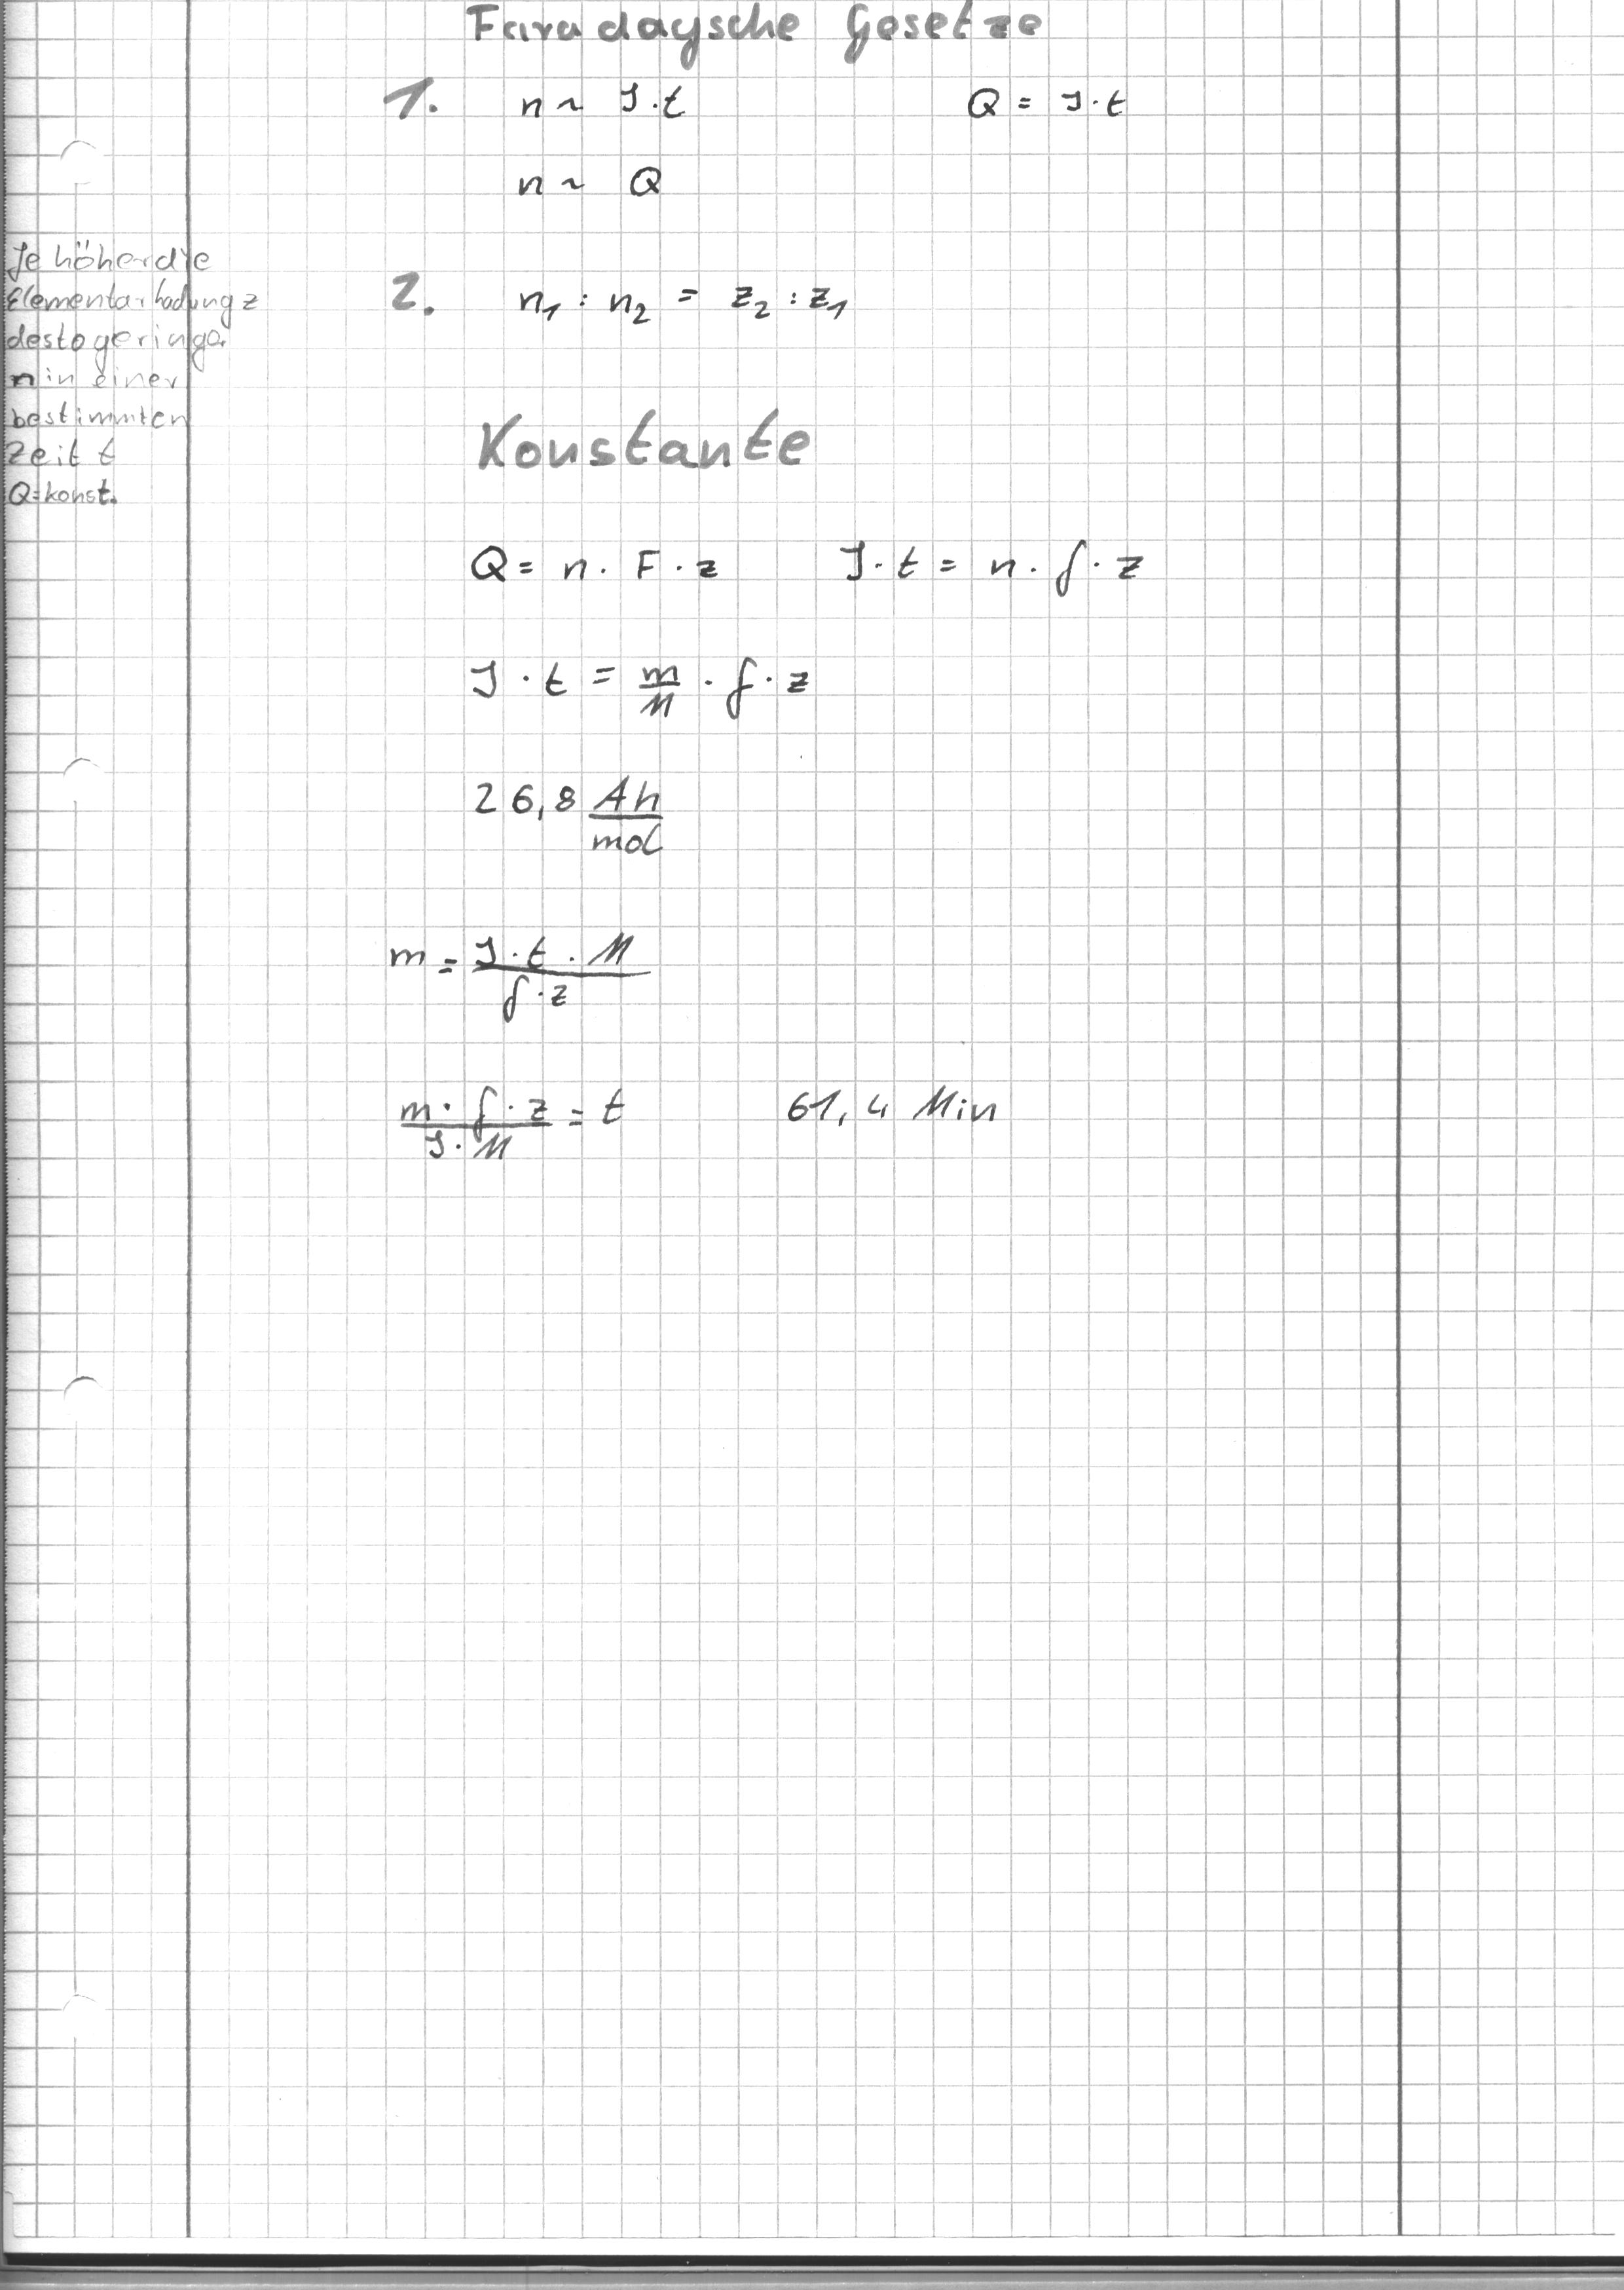 Faradaysche Gesetze
1. n ~ I·t Q = I·t
n ~ Q
Je höher die
Elementarladung z
desto geringer
n in einer
bestimmten
Zeit t
Q=konst.
2. n₁ : n₂ = z₂ : z₁
Konstante
Q = n · F · z I · t = n · f · z
I · t = m/M · f · z
26,8 Ah/mol
m = I · t · M / f · z
m · f · z / I · M = t 61,4 Min